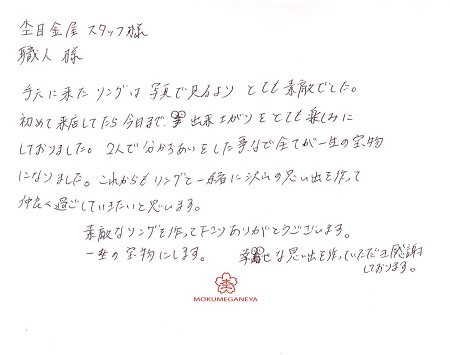 杢目金屋 スタッフ様
職人 様
手元に来たリングは写真で見るより とても素敵でした。
初めて来店してから今日まで、出来上がりをとても楽しみに
しておりました。2人で分かちあいをした事など全てが一生の宝物
になりました。これからもリングと一緒に沢山の思い出を作って
仲良く過ごしていきたいと思います。
素敵なリングを作って下さりありがとうございます。
一生の宝物にします。 幸せな思い出を作っていただき感謝
しております。
MOKUMEGANEYA